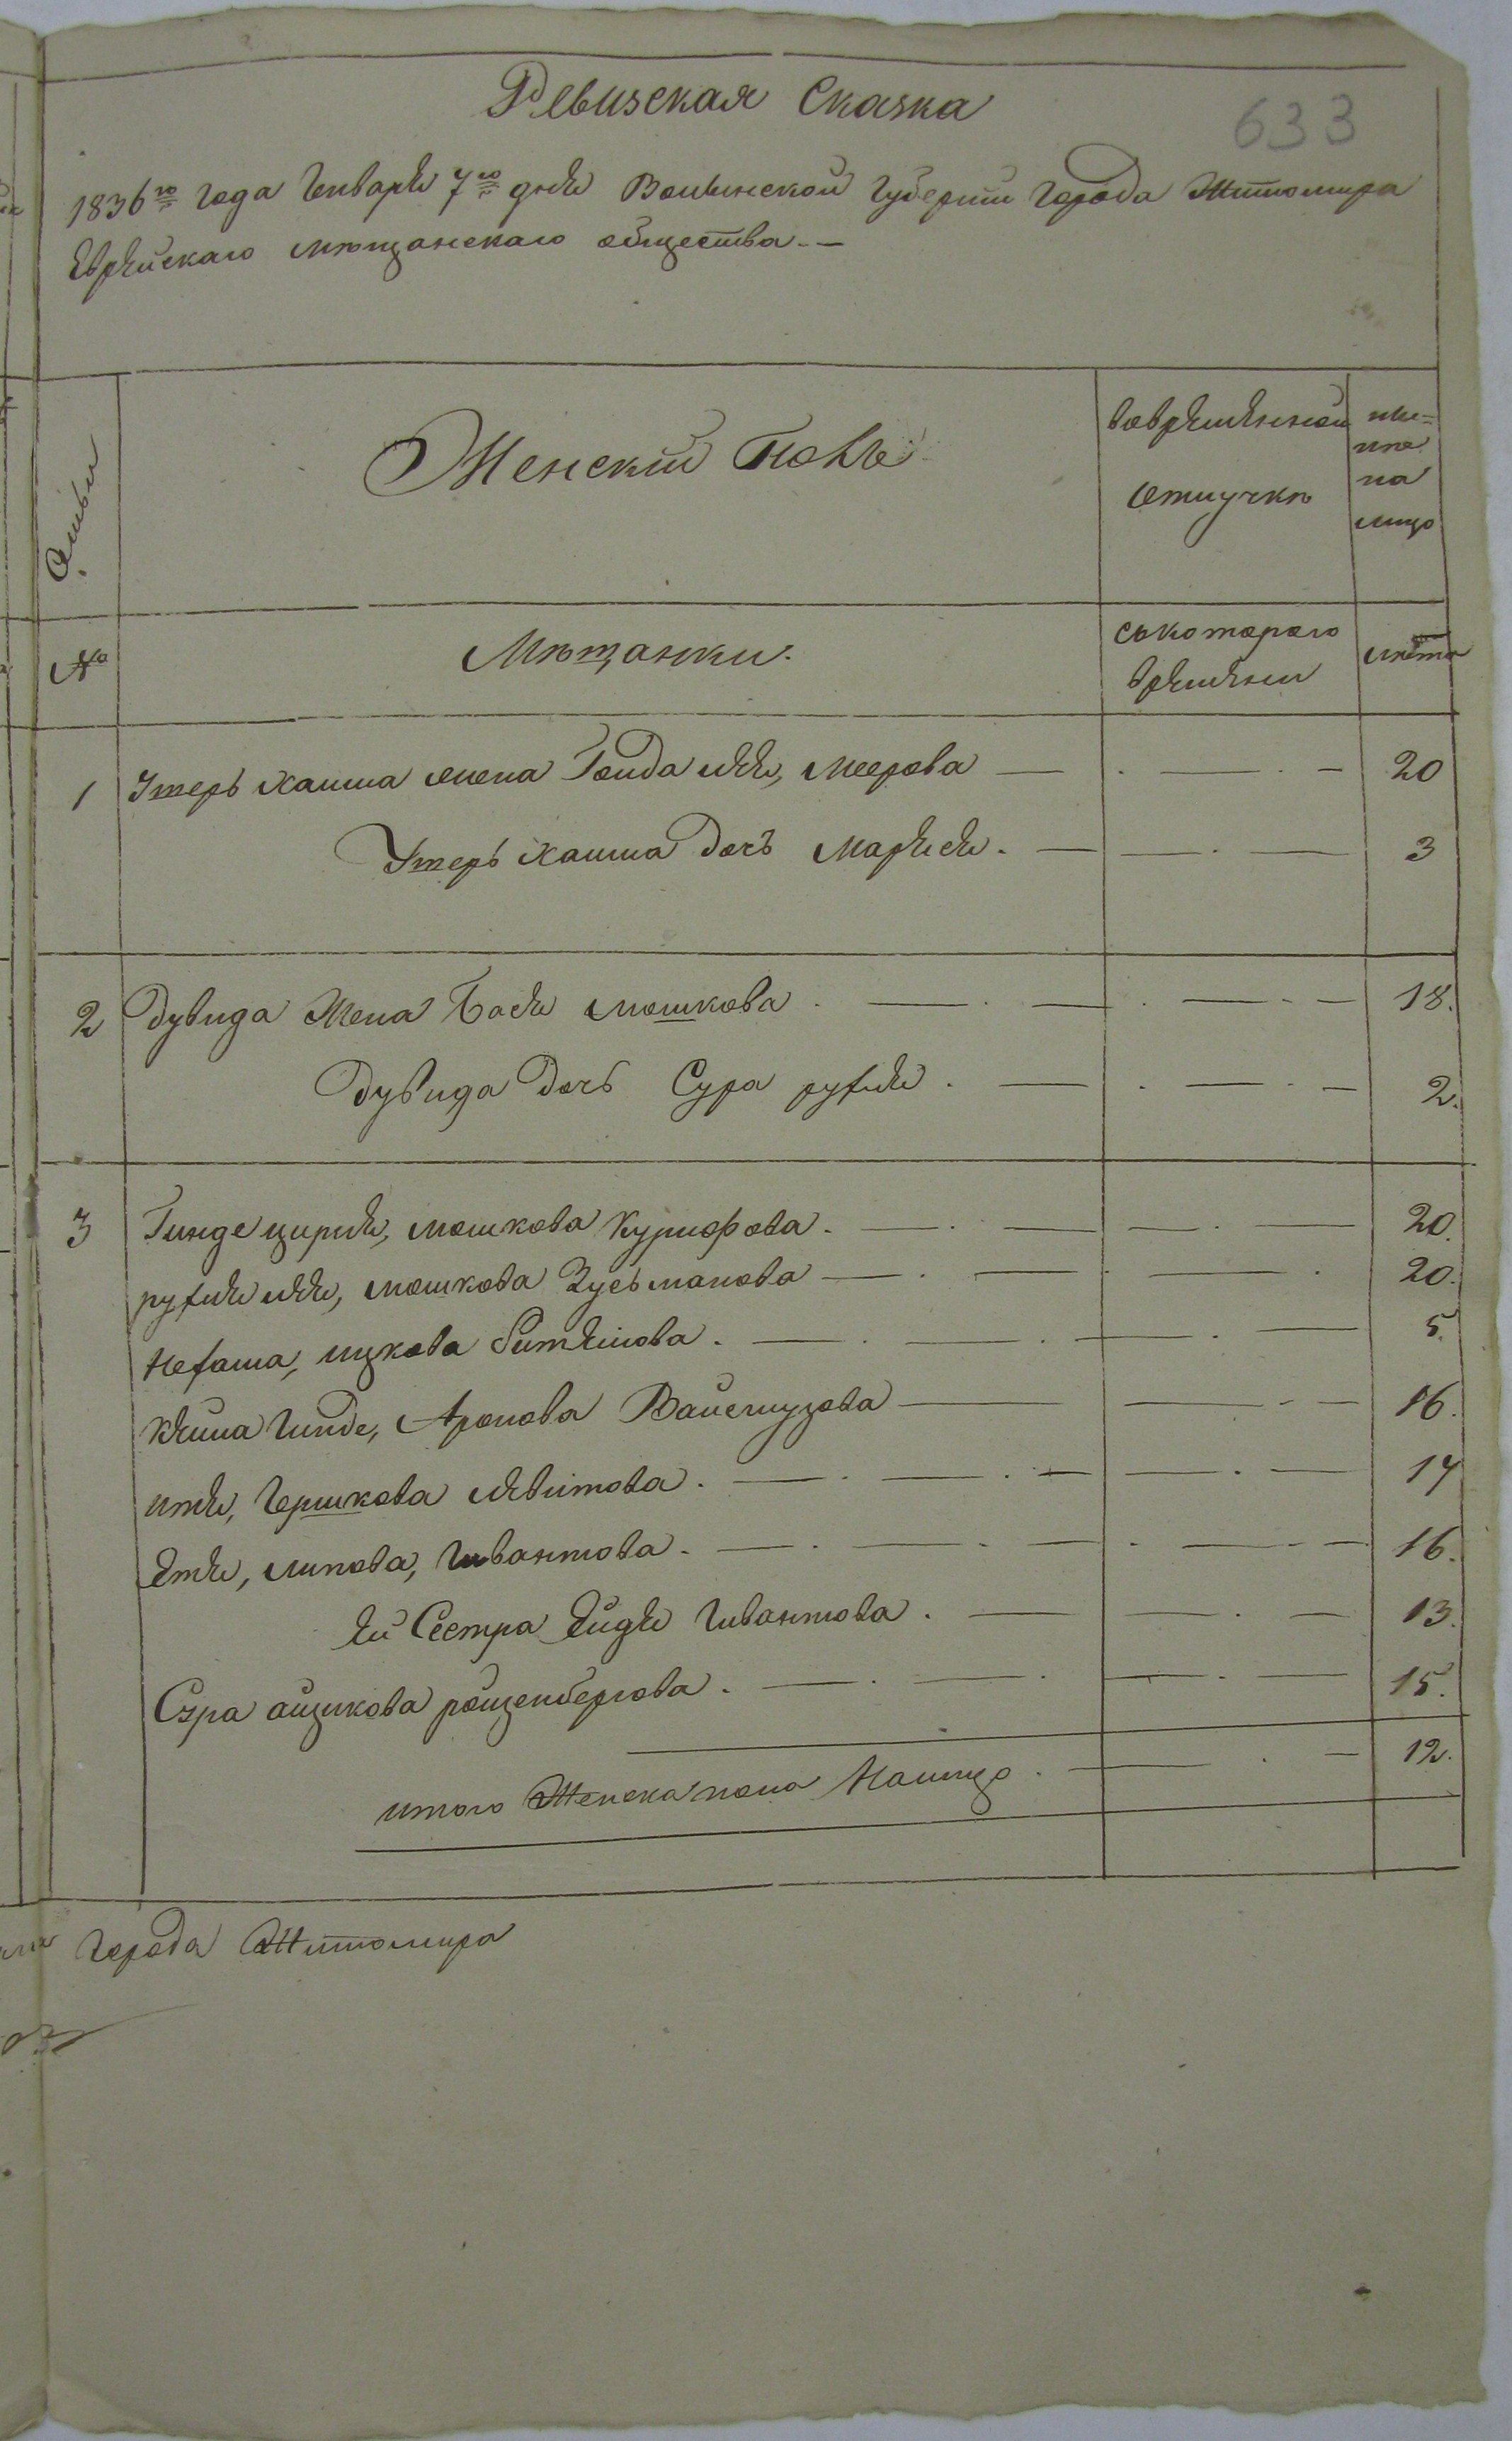 Ревизская Сказка
633
1836го года Генваря 7го дня Волынской Губернии Города Житомира
Еврейскаго мѣщанскаго общества. —
Семьи
Женский Полъ
вовремянной отлучкѣ
ны= нѣ на лицо
№
Мѣщанки.
съкотораго времяни
лѣта
1 Утеръ хаима жена Голда лея, меерова — 20
Утеръ хаима дочь Маряся. — 3
2 Дувида Жена Бася мошкова. — 18.
Дувида дочь Сура рухля. — 2.
3 Гинде цирля, мошкова — 20.
рухля лея, мошкова Зусьманова — 20.
Нехама, ицкова — 5.
Кейла гинде, Аронова — 16.
итя, гершкова левитова. — 14
Етя, липова, — 16.
ей Сестра Ейдя — 13.
Сура айзикова розенбергова. — 15.
итого Женска пола Налицо. — 12.
Города Житомира